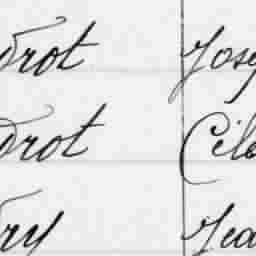 drot Jose
drot Cél
dry Jea